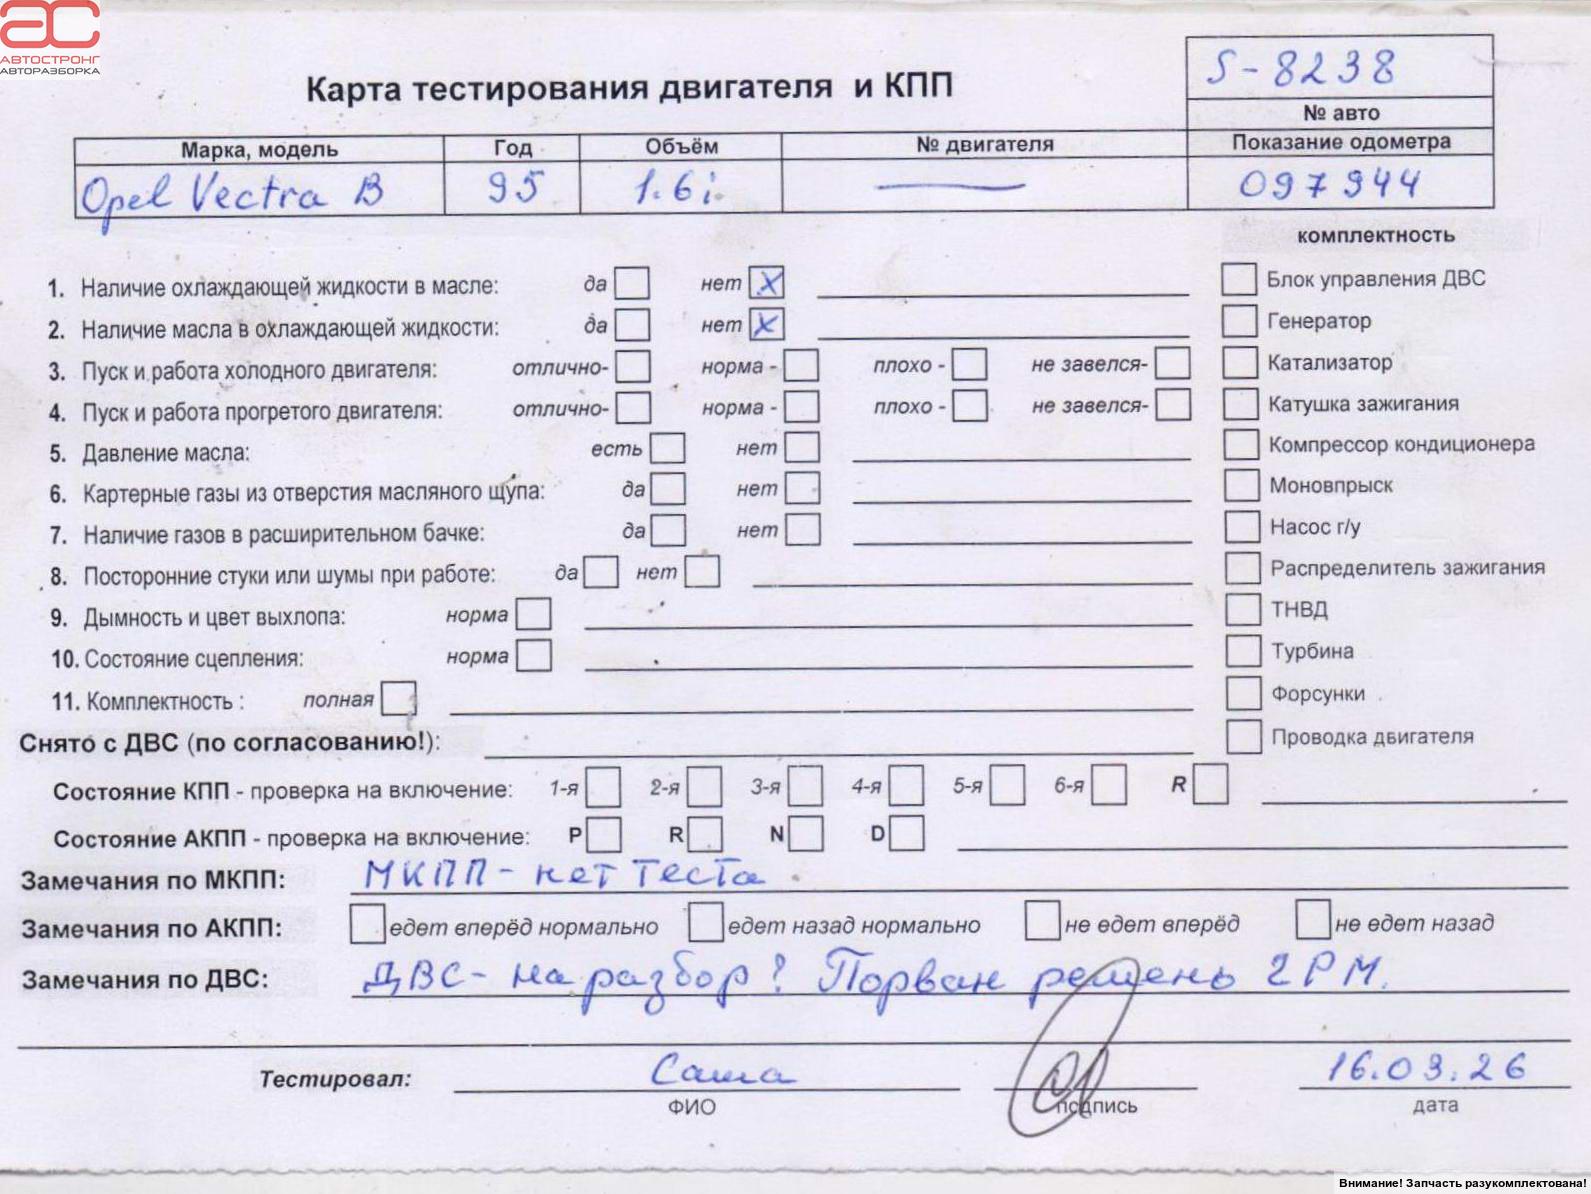 АВТОСТРОНГ
АВТОРАЗБОРКА
Карта тестирования двигателя и КПП
S-8238
№ авто
Марка, модель Год Объём № двигателя Показание одометра
Opel Vectra B 95 1.6i — 097944
комплектность
1. Наличие охлаждающей жидкости в масле: да нет X Блок управления ДВС
2. Наличие масла в охлаждающей жидкости: да нет X Генератор
3. Пуск и работа холодного двигателя: отлично- норма - плохо - не завелся- Катализатор
4. Пуск и работа прогретого двигателя: отлично- норма - плохо - не завелся- Катушка зажигания
5. Давление масла: есть нет Компрессор кондиционера
6. Картерные газы из отверстия масляного щупа: да нет Моновпрыск
7. Наличие газов в расширительном бачке: да нет Насос г/у
8. Посторонние стуки или шумы при работе: да нет Распределитель зажигания
9. Дымность и цвет выхлопа: норма ТНВД
10. Состояние сцепления: норма Турбина
11. Комплектность : полная Форсунки
Снято с ДВС (по согласованию!): Проводка двигателя
Состояние КПП - проверка на включение: 1-я 2-я 3-я 4-я 5-я 6-я R
Состояние АКПП - проверка на включение: P R N D
Замечания по МКПП: МКПП - нет теста
Замечания по АКПП: едет вперёд нормально едет назад нормально не едет вперёд не едет назад
Замечания по ДВС: ДВС - на разбор! Порван ремень ГРМ.
Тестировал: Саша 16.03.26
ФИО подпись дата
Внимание! Запчасть разукомплектована!